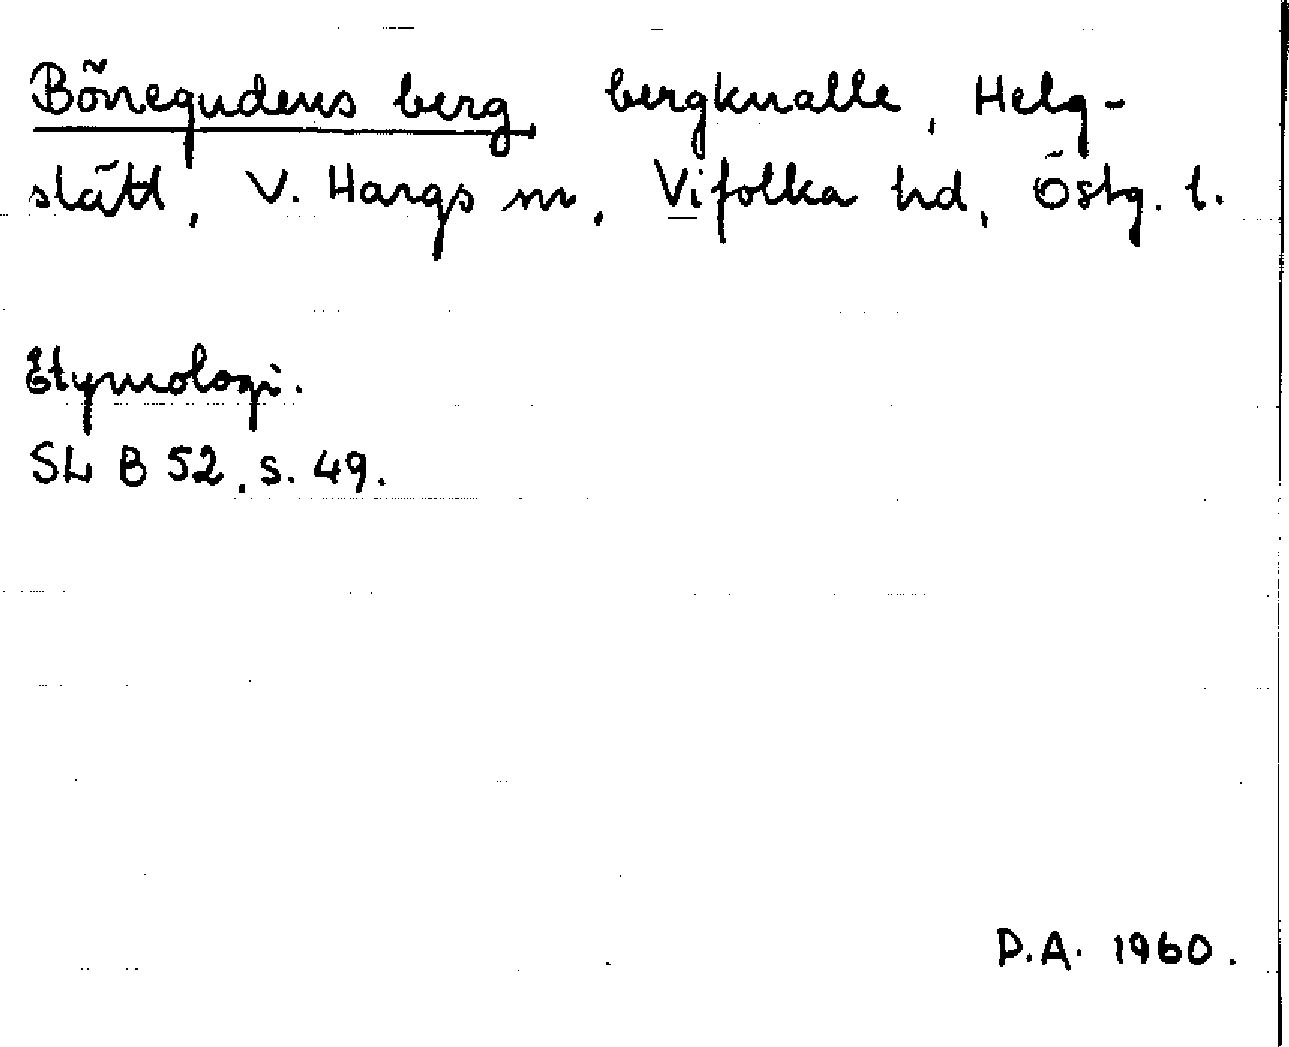 Bönegudens berg bergknalle, Helg-
slätt, V. Hargs sn, Vifolka hd, Östg. l.
Etymologi.
SL B 52, s. 49.
D.A. 1960.